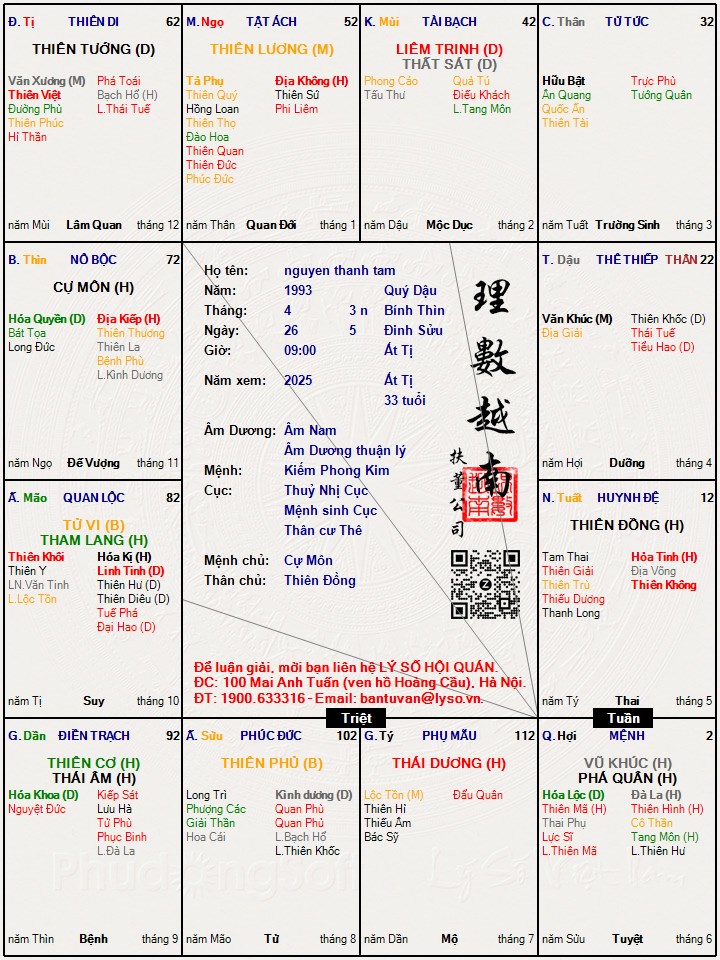 Đ. Tị THIÊN DI 62
THIÊN TƯỚNG (D)
Văn Xương (M) Phá Toái
Thiên Việt Bạch Hổ (H)
Đường Phù L.Thái Tuế
Thiên Phúc
Hỉ Thần
năm Mùi Lâm Quan tháng 12
M. Ngọ TẬT ÁCH 52
THIÊN LƯƠNG (M)
Tả Phụ Địa Không (H)
Thiên Quý Thiên Sứ
Hồng Loan Phi Liêm
Thiên Thọ
Đào Hoa
Thiên Quan
Thiên Đức
Phúc Đức
năm Thân Quan Đới tháng 1
K. Mùi TÀI BẠCH 42
LIÊM TRINH (D)
THẤT SÁT (D)
Phong Cáo Quả Tú
Tấu Thư Điếu Khách
L.Tang Môn
năm Dậu Mộc Dục tháng 2
C. Thân TỬ TỨC 32
Hữu Bật Trực Phù
Ân Quang Tướng Quân
Quốc Ấn
Thiên Tài
năm Tuất Trường Sinh tháng 3
B. Thìn NÔ BỘC 72
CỰ MÔN (H)
Hóa Quyền (D) Địa Kiếp (H)
Bát Tọa Thiên Thương
Long Đức Thiên La
Bệnh Phù
L.Kình Dương
năm Ngọ Đế Vượng tháng 11
Họ tên: nguyen thanh tam
Năm: 1993 Quý Dậu
Tháng: 4 3 n Bính Thìn
Ngày: 26 5 Đinh Sửu
Giờ: 09:00 Ất Tị
Năm xem: 2025 Ất Tị
33 tuổi
Âm Dương: Âm Nam
Âm Dương thuận lý
Mệnh: Kiếm Phong Kim
Cục: Thuỷ Nhị Cục
Mệnh sinh Cục
Thân cư Thê
Mệnh chủ: Cự Môn
Thân chủ: Thiên Đồng
理數越南
扶董公司
Để luận giải, mời bạn liên hệ LÝ SỐ HỘI QUÁN.
ĐC: 100 Mai Anh Tuấn (ven hồ Hoàng Cầu), Hà Nội.
ĐT: 1900.633316 - Email: bantuvan@lyso.vn.
T. Dậu THÊ THIẾP THÂN 22
Văn Khúc (M) Thiên Khốc (D)
Địa Giải Thái Tuế
Tiểu Hao (D)
năm Hợi Dưỡng tháng 4
Ấ. Mão QUAN LỘC 82
TỬ VI (B)
THAM LANG (H)
Thiên Khôi Hóa Kị (H)
Thiên Y Linh Tinh (D)
LN.Văn Tinh Thiên Hư (D)
L.Lộc Tồn Thiên Diêu (D)
Tuế Phá
Đại Hao (D)
năm Tị Suy tháng 10
N. Tuất HUYNH ĐỆ 12
THIÊN ĐỒNG (H)
Tam Thai Hỏa Tinh (H)
Thiên Giải Địa Võng
Thiên Trù Thiên Không
Thiếu Dương
Thanh Long
năm Tý Thai tháng 5
Triệt
Tuần
G. Dần ĐIỀN TRẠCH 92
THIÊN CƠ (H)
THÁI ÂM (H)
Hóa Khoa (D) Kiếp Sát
Nguyệt Đức Lưu Hà
Tử Phù
Phục Binh
L.Đà La
năm Thìn Bệnh tháng 9
Ấ. Sửu PHÚC ĐỨC 102
THIÊN PHỦ (B)
Long Trì Kình dương (D)
Phượng Các Quan Phù
Giải Thần Quan Phủ
Hoa Cái L.Bạch Hổ
L.Thiên Khốc
năm Mão Tử tháng 8
G. Tý PHỤ MẪU 112
THÁI DƯƠNG (H)
Lộc Tồn (M) Đẩu Quân
Thiên Hỉ
Thiếu Âm
Bác Sỹ
năm Dần Mộ tháng 7
Q. Hợi MỆNH 2
VŨ KHÚC (H)
PHÁ QUÂN (H)
Hóa Lộc (D) Đà La (H)
Thiên Mã (H) Thiên Hình (H)
Thai Phụ Cô Thần
Lực Sĩ Tang Môn (H)
L.Thiên Mã L.Thiên Hư
năm Sửu Tuyệt tháng 6